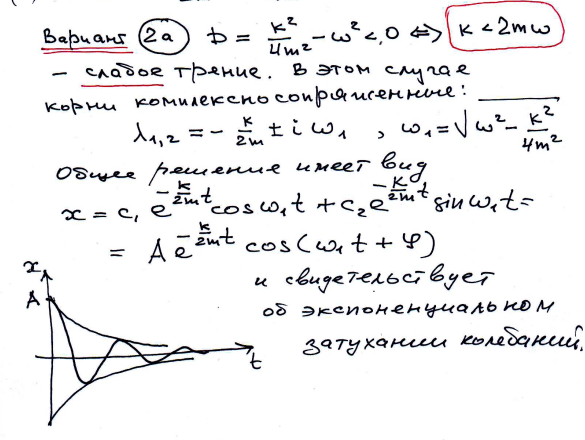 Вариант 2а D = k²/4m² - ω² < 0 ⇔ k < 2mω
- слабое трение. В этом случае
корни комплексно сопряженные:
λ₁,₂ = - k/2m ± i ω₁ , ω₁ = √(ω² - k²/4m²)
Общее решение имеет вид
x = c₁ e^(-k/2m t) cos ω₁t + c₂ e^(-k/2m t) sin ω₁t =
= A e^(-k/2m t) cos(ω₁t + φ)
и свидетельствует
об экспоненциальном
затухании колебаний.
x
A
t